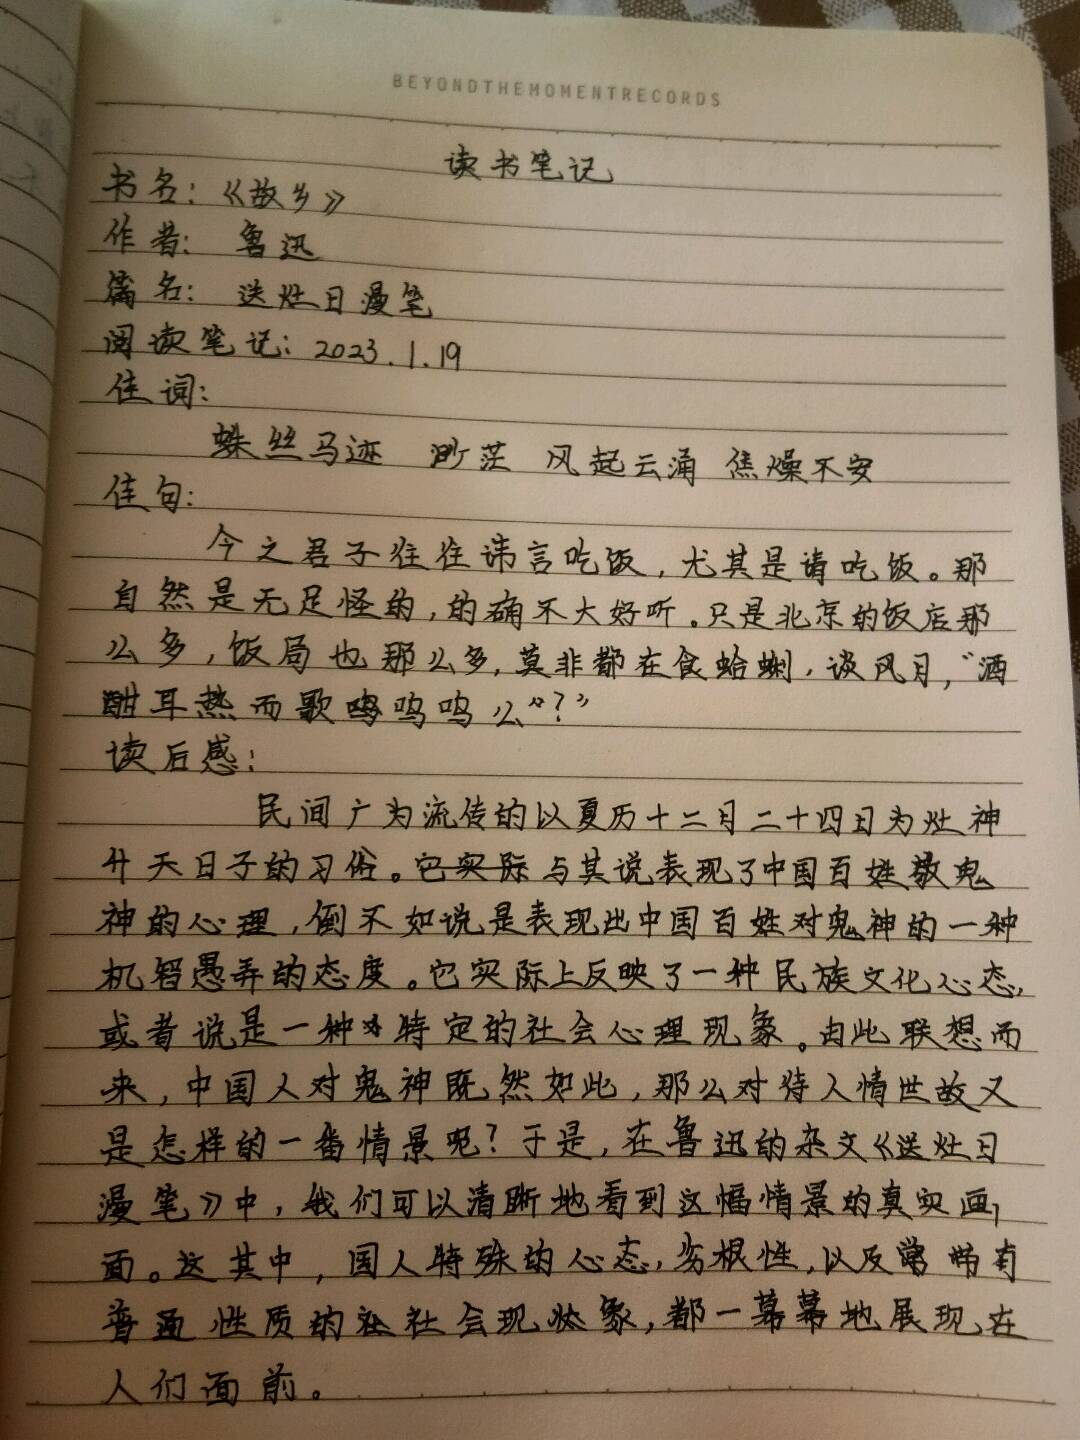 BEYONDTHEMOMENTRECORDS
读书笔记
书名：《故乡》
作者： 鲁迅
篇名： 送灶日漫笔
阅读笔记：2023.1.19
佳词：
蛛丝马迹 渺茫 风起云涌 焦燥不安
佳句：
今之君子往往讳言吃饭，尤其是请吃饭。那
自然是无足怪的，的确不大好听。只是北京的饭店那
么多，饭局也那么多，莫非都在食蛤蜊，谈风月，“酒
酣耳热而歌呜呜呜么”？”
读后感：
民间广为流传的以夏历十二月二十四日为灶神
升天日子的习俗。它实际与其说表现了中国百姓敬鬼
神的心理，倒不如说是表现出中国百姓对鬼神的一种
机智愚弄的态度。它实际上反映了一种民族文化心态，
或者说是一种特定的社会心理现象。由此联想而
来，中国人对鬼神既然如此，那么对待人情世故又
是怎样的一番情景呢？于是，在鲁迅的杂文《送灶日
漫笔》中，我们可以清晰地看到这幅情景的真实画
面。这其中，国人特殊的心态，劣根性，以及带有
普通性质的社会现象，都一幕幕地展现在
人们面前。